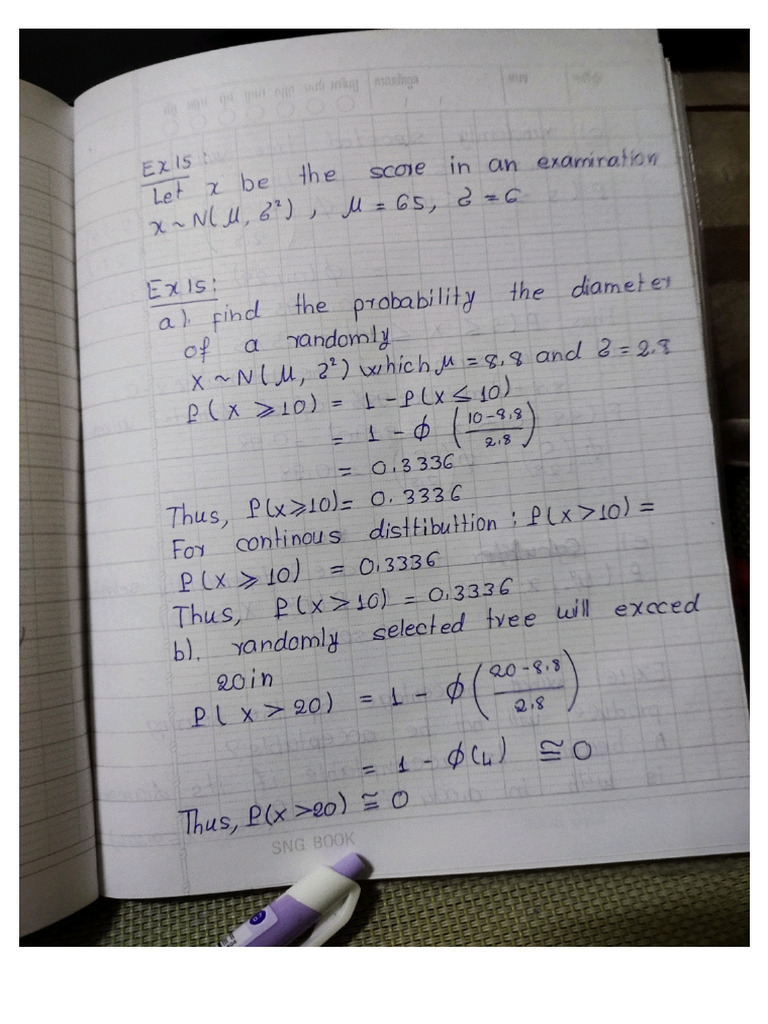 Ex15
Let x be the score in an examination
x ~ N(μ, δ²), μ = 65, δ = 6
Ex15:
a). find the probability the diameter
of a randomly
x ~ N(μ, δ²) which μ = 8.8 and δ = 2.8
P(x ⩾ 10) = 1 - P(x ≤ 10)
= 1 - ϕ (10-8.8/2.8)
= 0.3336
Thus, P(x⩾10)= 0.3336
For continous disttibuttion : P(x>10) =
P(x ⩾ 10) = 0.3336
Thus, P(x>10) = 0.3336
b). randomly selected tree will excced
20in
P(x > 20) = 1 - ϕ(20-8.8/2.8)
= 1 - ϕ(4) ≅ 0
Thus, P(x>20) ≅ 0
SNG BOOK